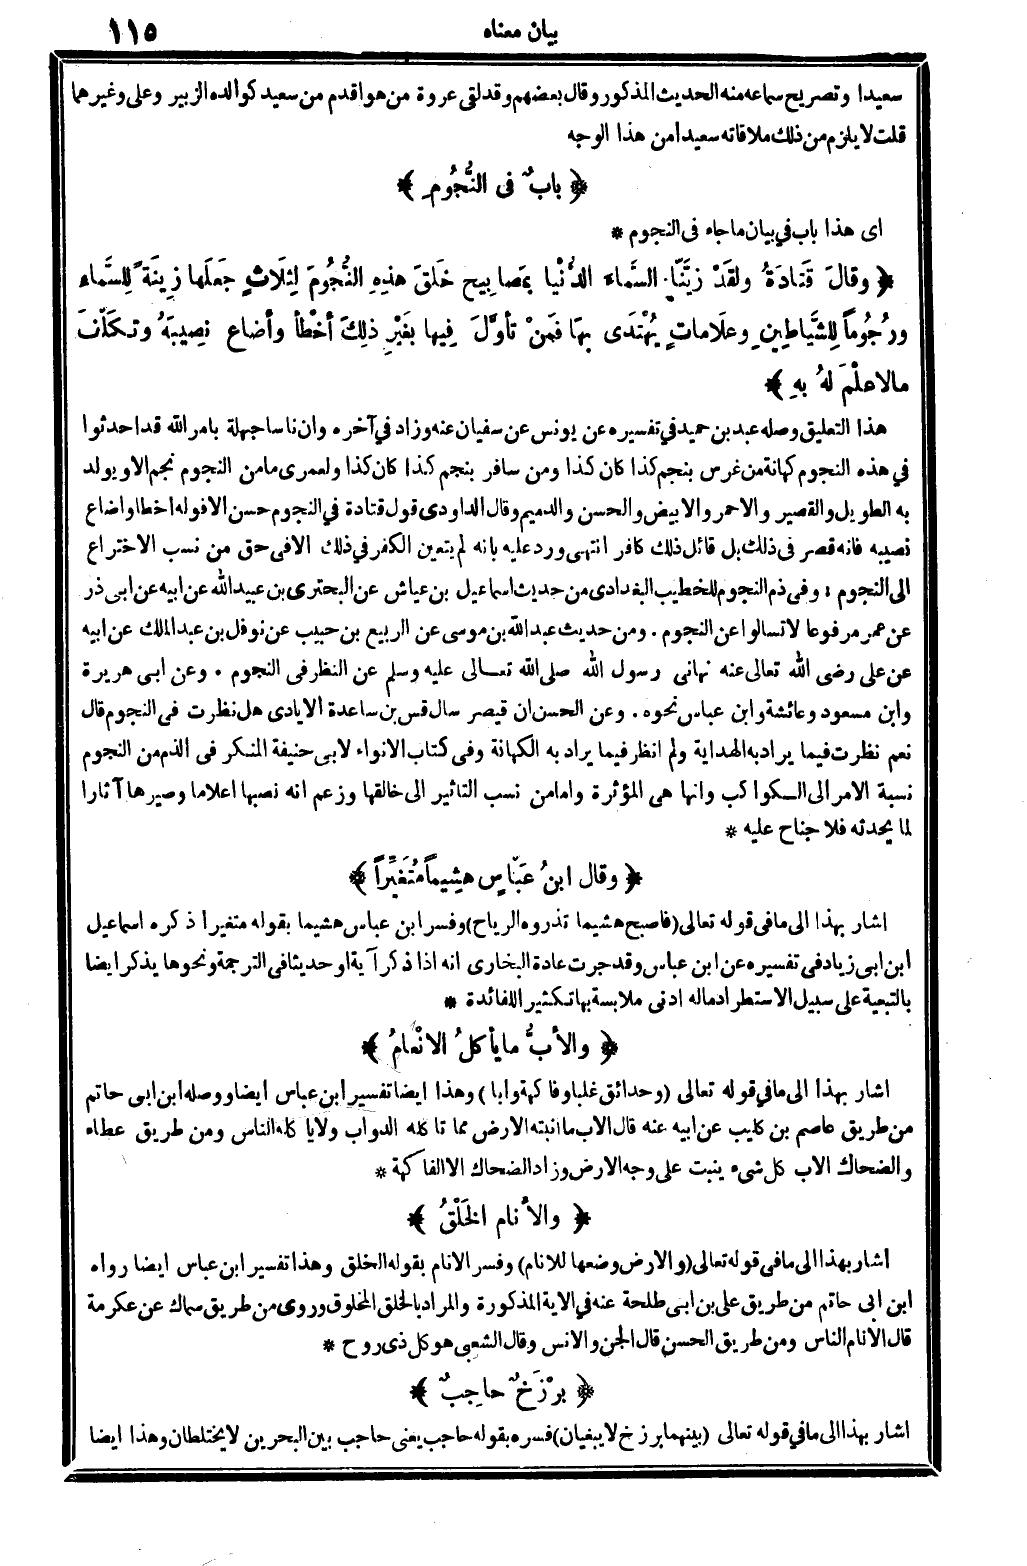 بيان معناه ١١٥
سعيدا وتصريح سماعه منه الحديث المذكور وقال بعضهم وقد لقى عروة من هو اقدم من سعيد كوالده الزبير وعلى وغيرهما
قلت لا يلزم من ذلك ملاقاته سعيدا من هذا الوجه
﴿ بابٌ فى النُّجُومِ ﴾
اى هذا باب في بيان ما جاء فى النجوم *
﴿ وقالَ قَتَادَةُ ولقَدْ زيَّنَّا السَّماءَ الدُّنْيا بمَصابِيح خَلَقَ هذِهِ النُّجُومَ لِثَلاثٍ جَعَلَها زِينَةً لِلسَّماءِ
ورُجُوماً لِلشَّياطِينِ وعلَاماتٍ يُهْتَدَى بهَا فَمَنْ تأوَّلَ فِيها بغَيْرِ ذلِكَ أخْطأَ وأضاع نصِيبَهُ وتكَلَّفَ
مالا عِلْمَ لهُ بهِ ﴾
هذا التعليق وصله عبد بن حميد في تفسيره عن يونس عن سفيان عنه وزاد في آخره وان ناسا جهلة بامر الله قد احدثوا
في هذه النجوم كهانة من غرس بنجم كذا كان كذا ومن سافر بنجم كذا كان كذا ولعمرى ما من النجوم نجم الا ويولد
به الطويل والقصير والاحمر والابيض والحسن والدميم وقال الداودى قول قتادة في النجوم حسن الا قوله اخطا واضاع
نصيبه فانه قصر فى ذلك بل قائل ذلك كافر انتهى ورد عليه بانه لم يتعين الكفر في ذلك الا فى حق من نسب الاختراع
الى النجوم : وفى ذم النجوم للخطيب البغدادى من حديث اسماعيل بن عياش عن البحترى بن عبيد الله عن ابيه عن ابى ذر
عن عمر مرفوعا لا تسالوا عن النجوم . ومن حديث عبد الله بن موسى عن الربيع بن حبيب عن نوفل بن عبد الملك عن ابيه
عن على رضى الله تعالى عنه نهانى رسول الله صلى الله تعالى عليه وسلم عن النظر فى النجوم . وعن ابى هريرة
وابن مسعود وعائشة وابن عباس نحوه . وعن الحسن ان قيصر سال قس بن ساعدة الايادى هل نظرت فى النجوم قال
نعم نظرت فيما يراد به الهداية ولم انظر فيما يراد به الكهانة وفى كتاب الانواء لابى حنيفة المنكر فى الذم من النجوم
نسبة الامر الى الكواكب وانها هى المؤثرة واما من نسب التاثير الى خالقها وزعم انه نصبها اعلاما وصيرها آثارا
لما يحدثه فلا جناح عليه *
﴿ وقال ابنُ عَبَّاسٍ هشِيماً مُتَغَيِّراً ﴾
اشار بهذا الى ما فى قوله تعالى (فاصبح هشيما تذروه الرياح) وفسر ابن عباس هشيما بقوله متغيرا ذكره اسماعيل
ابن ابى زياد فى تفسيره عن ابن عباس وقد جرت عادة البخارى انه اذا ذكر آية او حديثا فى الترجمة ونحوها يذكر ايضا
بالتبعية على سبيل الاستطراد ماله ادنى ملابسة بها تكثيرا للفائدة *
﴿ والأبُّ ما يأكلُ الانْعامُ ﴾
اشار بهذا الى ما في قوله تعالى (وحدائق غلبا وفاكهة وابا) وهذا ايضا تفسير ابن عباس ايضا ووصله ابن ابى حاتم
من طريق عاصم بن كليب عن ابيه عنه قال الاب ما انبته الارض مما تاكله الدواب ولا ياكله الناس ومن طريق عطاء
والضحاك الاب كل شىء ينبت على وجه الارض وزاد الضحاك الا الفاكهة *
﴿ والأنام الخَلْقُ ﴾
اشار بهذا الى ما فى قوله تعالى (والارض وضعها للانام) وفسر الانام بقوله الخلق وهذا تفسير ابن عباس ايضا رواه
ابن ابى حاتم من طريق على بن ابى طلحة عنه في الاية المذكورة والمراد بالخلق المخلوق وروى من طريق سماك عن عكرمة
قال الانام الناس ومن طريق الحسن قال الجن والانس وقال الشعبى هو كل ذى روح *
﴿ برْزَخٌ حاجِبٌ ﴾
اشار بهذا الى ما في قوله تعالى (بينهما برزخ لا يبغيان) فسره بقوله حاجب يعنى حاجب بين البحرين لا يختلطان وهذا ايضا